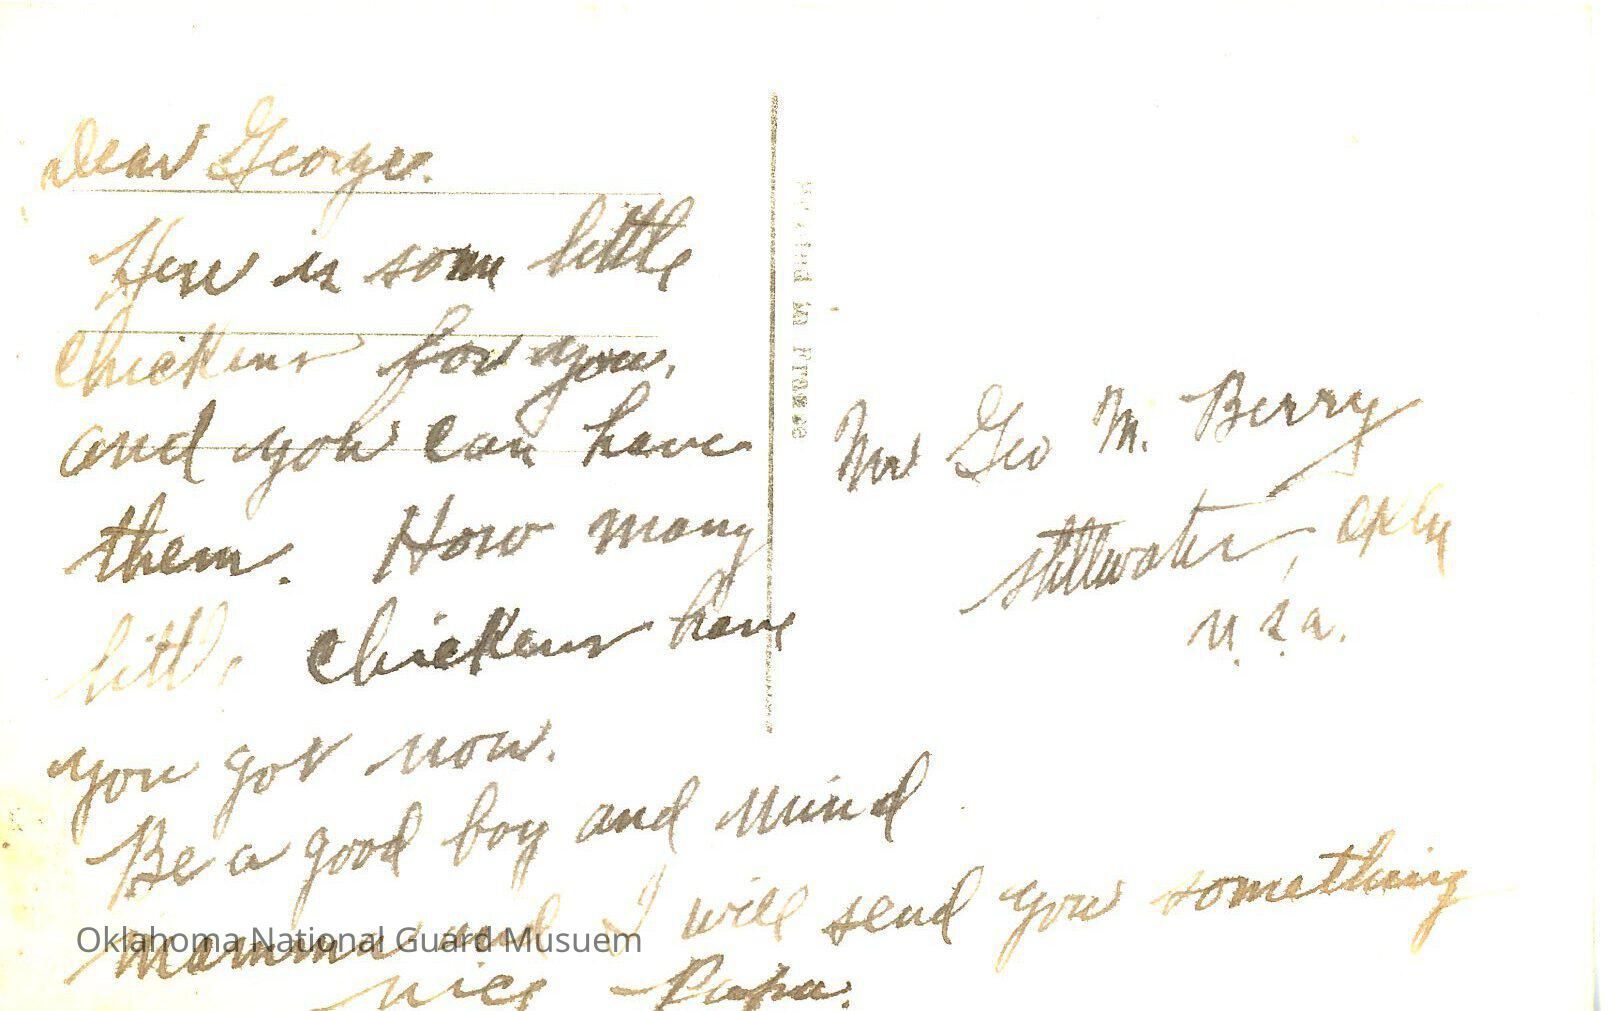 Dear George.
Here is some little
chickens for you,
and you can have
them. How many
little chickens have
you got now.
Be a good boy and mind
mamma and I will send you something
nice Papa.
Printed in France
Mr Geo M. Berry
Stillwater, Okla
U.S.a.
Oklahoma National Guard Musuem